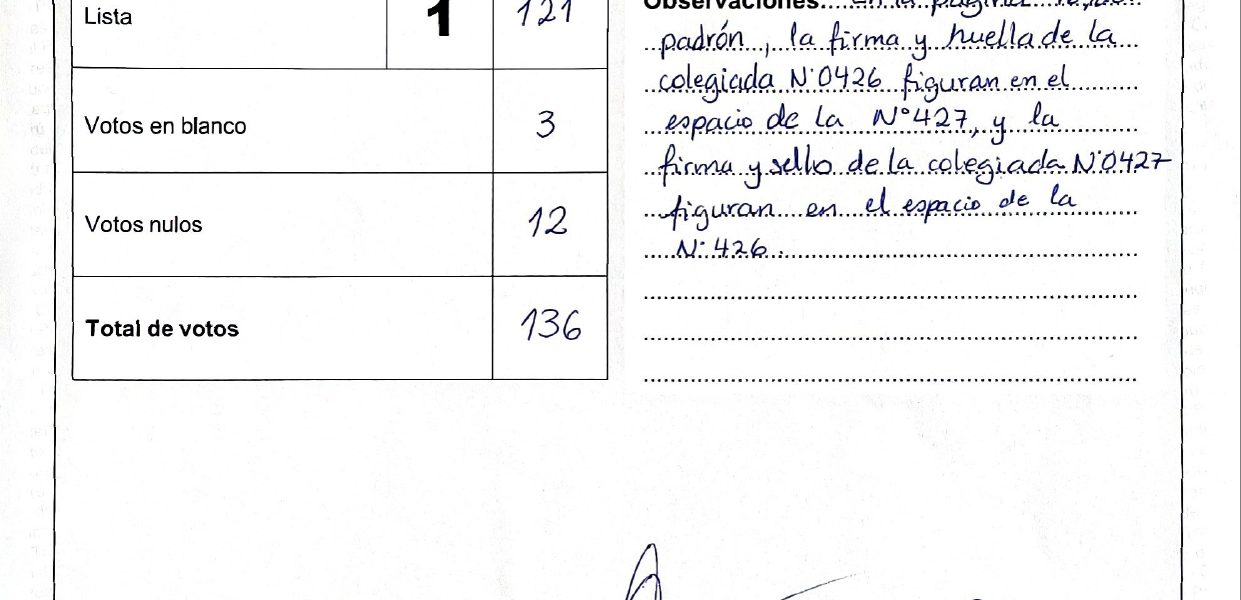 Lista 1 121
Votos en blanco 3
Votos nulos 12
Total de votos 136
Observaciones: en la página
padrón, la firma y huella de la
colegiada N°0426 figuran en el
espacio de la N°427, y la
firma y sello de la colegiada N°0427
figuran en el espacio de la
N° 426.